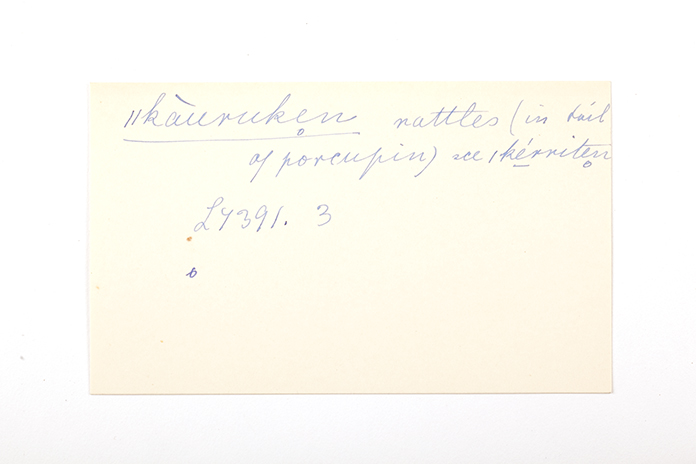 ǁkàuruken̥ rattles (in tail
of porcupin) see ǀkérriten̥
L7391. 3